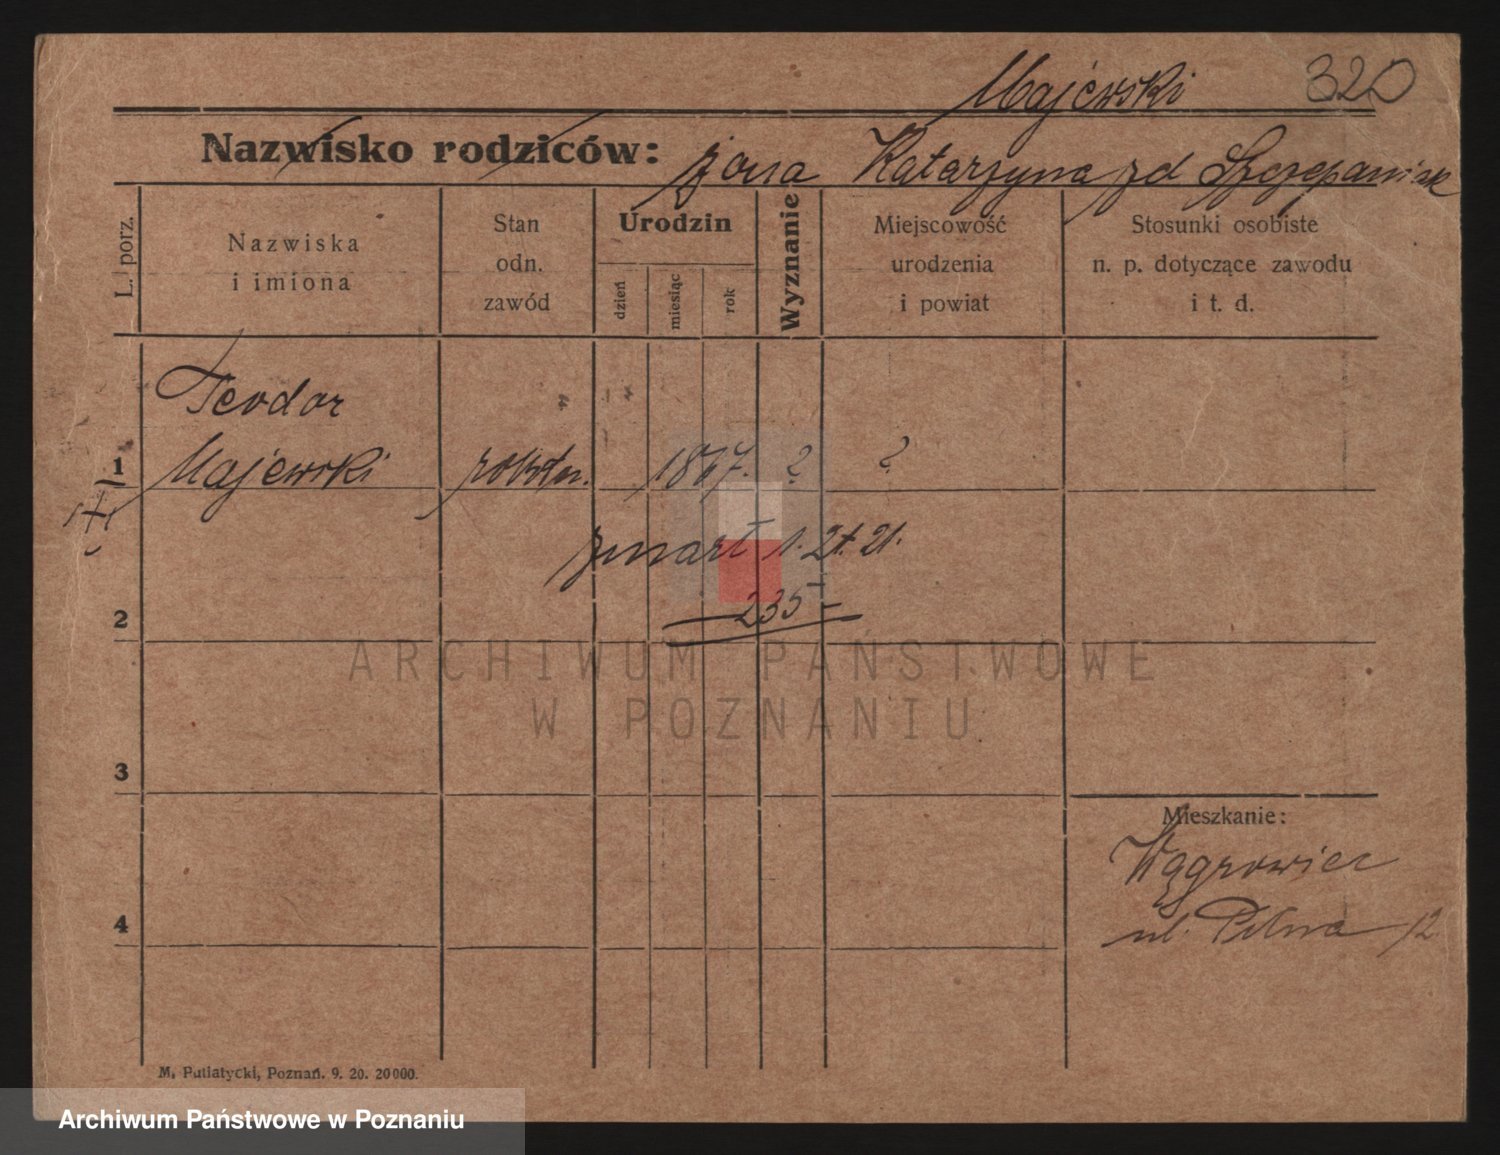 Majewski 320
Nazwisko rodziców: żona Katarzyna zd Szczepaniak
L. porz.
Nazwiska
i imiona
Stan
odn.
zawód
Urodzin
dzień
miesiąc
rok
Wyznanie
Miejscowość
urodzenia
i powiat
Stosunki osobiste
n. p. dotyczące zawodu
i t. d.
Teodor
1 Majewski robotn. ? ?
zmarł
2 235
ARCHIWUM PAŃSTWOWE
W POZNANIU
3
Mieszkanie:
Wągrowiec
4 ul. 12
M. Putiatycki, Poznań. 9. 20. 20000.
Archiwum Państwowe w Poznaniu